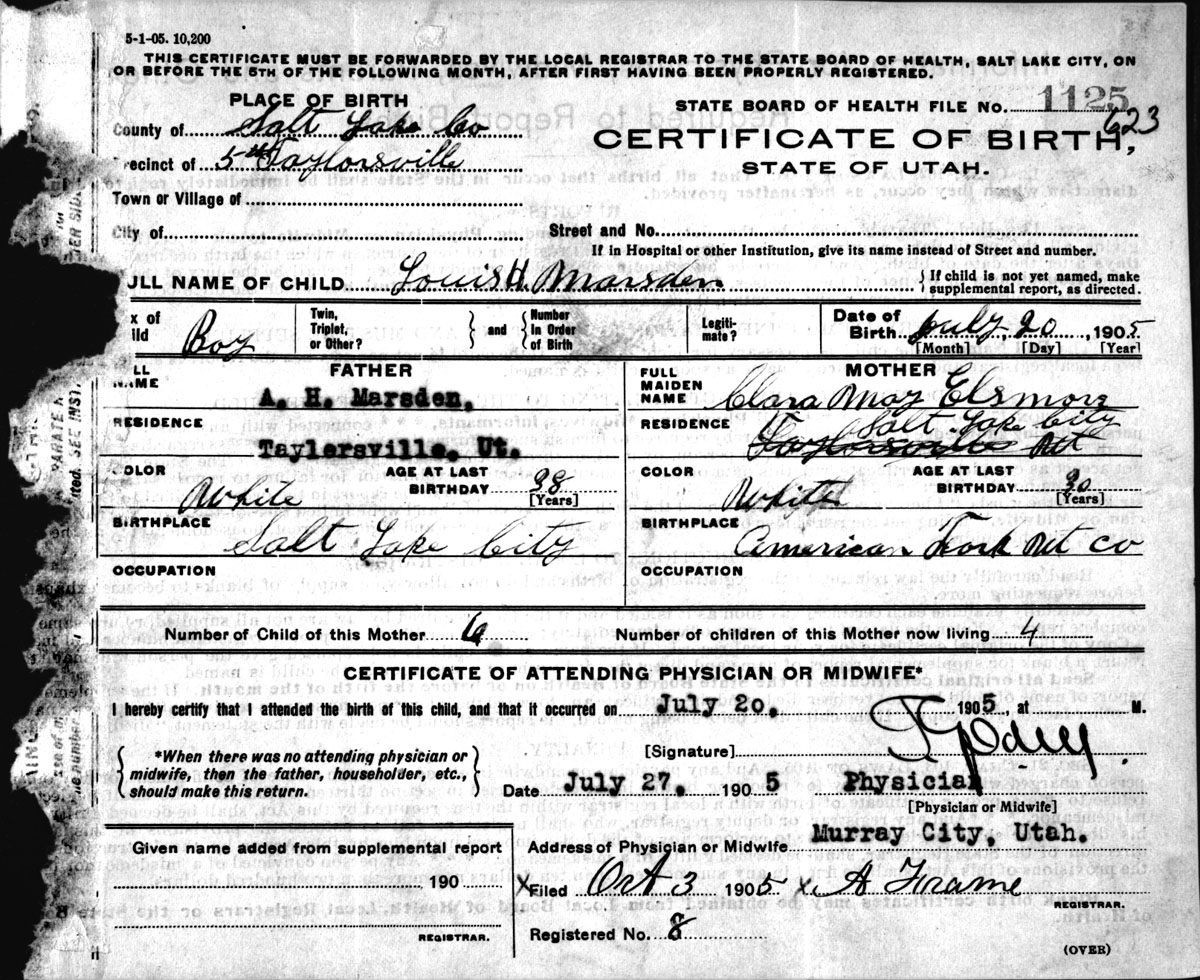 5-1-05. 10,200
THIS CERTIFICATE MUST BE FORWARDED BY THE LOCAL REGISTRAR TO THE STATE BOARD OF HEALTH, SALT LAKE CITY, ON
OR BEFORE THE 5TH OF THE FOLLOWING MONTH, AFTER FIRST HAVING BEEN PROPERLY REGISTERED.
PLACE OF BIRTH
STATE BOARD OF HEALTH FILE NO. 1125
623
County of Salt Lake Co
CERTIFICATE OF BIRTH,
recinct of 5th Taylorsville
STATE OF UTAH.
Town or Village of
City of
Street and No.
If in Hospital or other Institution, give its name instead of Street and number.
ULL NAME OF CHILD Louis H. Marsden { If child is not yet named, make
supplemental report, as directed.
x of
ild Boy
Twin,
Triplet,
or Other?
and
Number
In Order
of Birth
Legiti-
mate?
Date of
Birth July, 20, 1905
[Month] [Day] [Year]
FATHER
LL
NAME A. H. Marsden.
RESIDENCE
Taylersville, Ut.
COLOR White
AGE AT LAST
BIRTHDAY 38
[Years]
BIRTHPLACE
Salt Lake City
OCCUPATION
MOTHER
FULL
MAIDEN
NAME Clara May Elsmore
RESIDENCE Salt Lake City
Taylorsville Ut
COLOR White
AGE AT LAST
BIRTHDAY
[Years]
BIRTHPLACE
American Fork Ut Co
OCCUPATION
Number of Child of this Mother 6
Number of children of this Mother now living 4
CERTIFICATE OF ATTENDING PHYSICIAN OR MIDWIFE.*
I hereby certify that I attended the birth of this child, and that it occurred on July 20, 1905, at M.
{ *When there was no attending physician or
midwife, then the father, householder, etc.,
should make this return. }
[Signature]
Date July 27, 1905 Physician
[Physician or Midwife]
Address of Physician or Midwife Murray City, Utah.
Given name added from supplemental report
190
REGISTRAR.
X Filed Oct 3 1905 X A Frame
REGISTRAR.
Registered No. 8
(OVER)